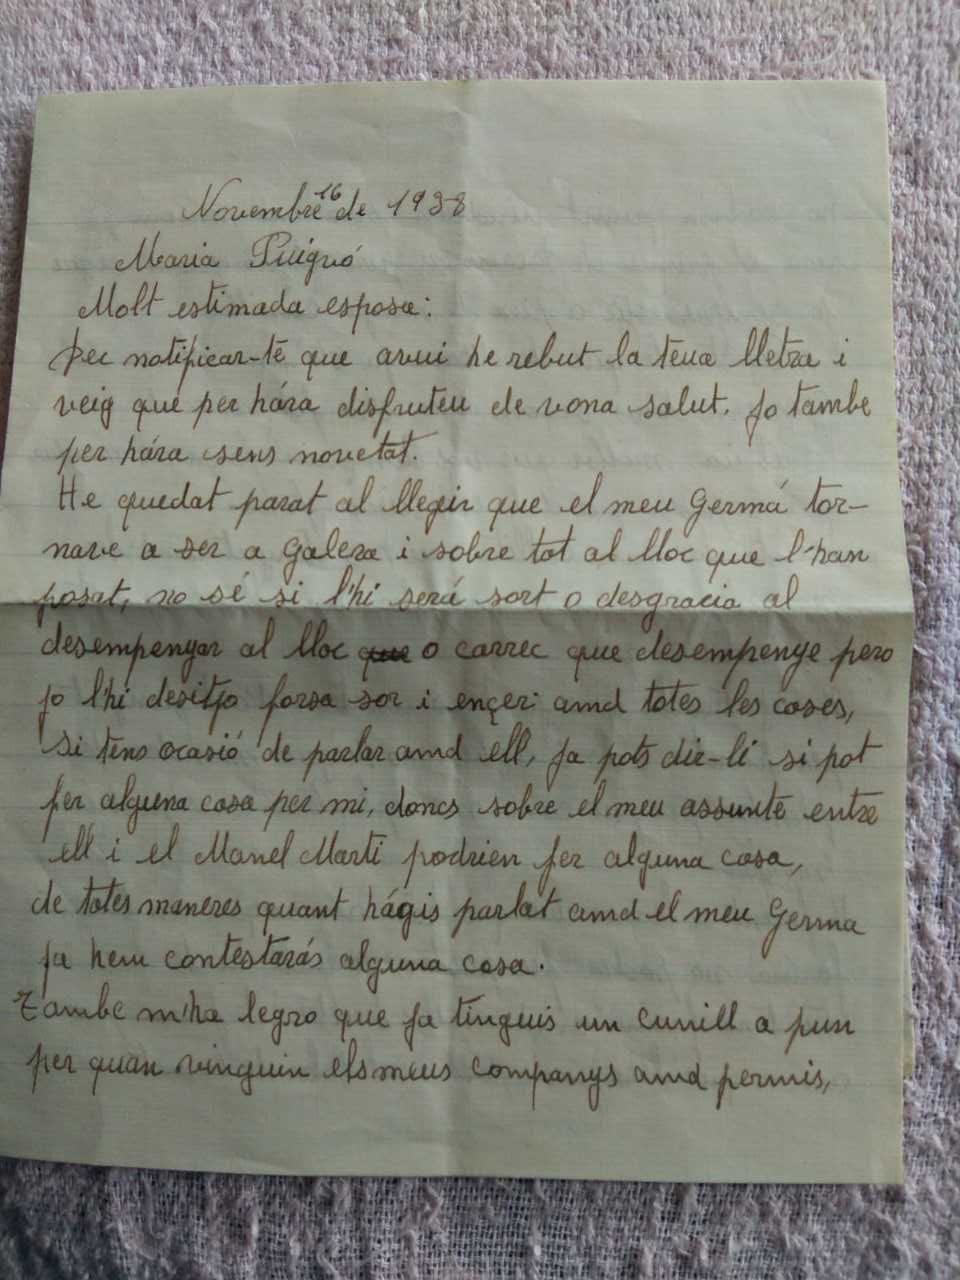 Novembre 16 de 1938
Maria Puigró
Molt estimada esposa:
Dec notificar-te que avui he rebut la teua lletra i
veig que per hára disfruteu de vona salut. Jo tambe
per hára sens novetat.
He quedat parat al llegir que el meu Germá tor-
nave a ser a Galera i sobre tot al lloc que l'han
posat, no sé si l'hi será sort o desgracia al
desempenyar al lloc que o carrec que desempenye pero
jo l'hi desitjo forsa sor i ençer amd totes les coses,
si tens ocasió de parlar amd ell, ja pots dir-li si pot
fer alguna cosa per mi, doncs sobre el meu assunte entre
ell i el Manel Marti podrien fer alguna cosa,
de totes maneres quant hágis parlat amd el meu Germa
ja hem contestarás alguna cosa.
Tambe m'ha legro que ja tinguis un cunill a pun
per quan vinguin els meus companys amd permis,